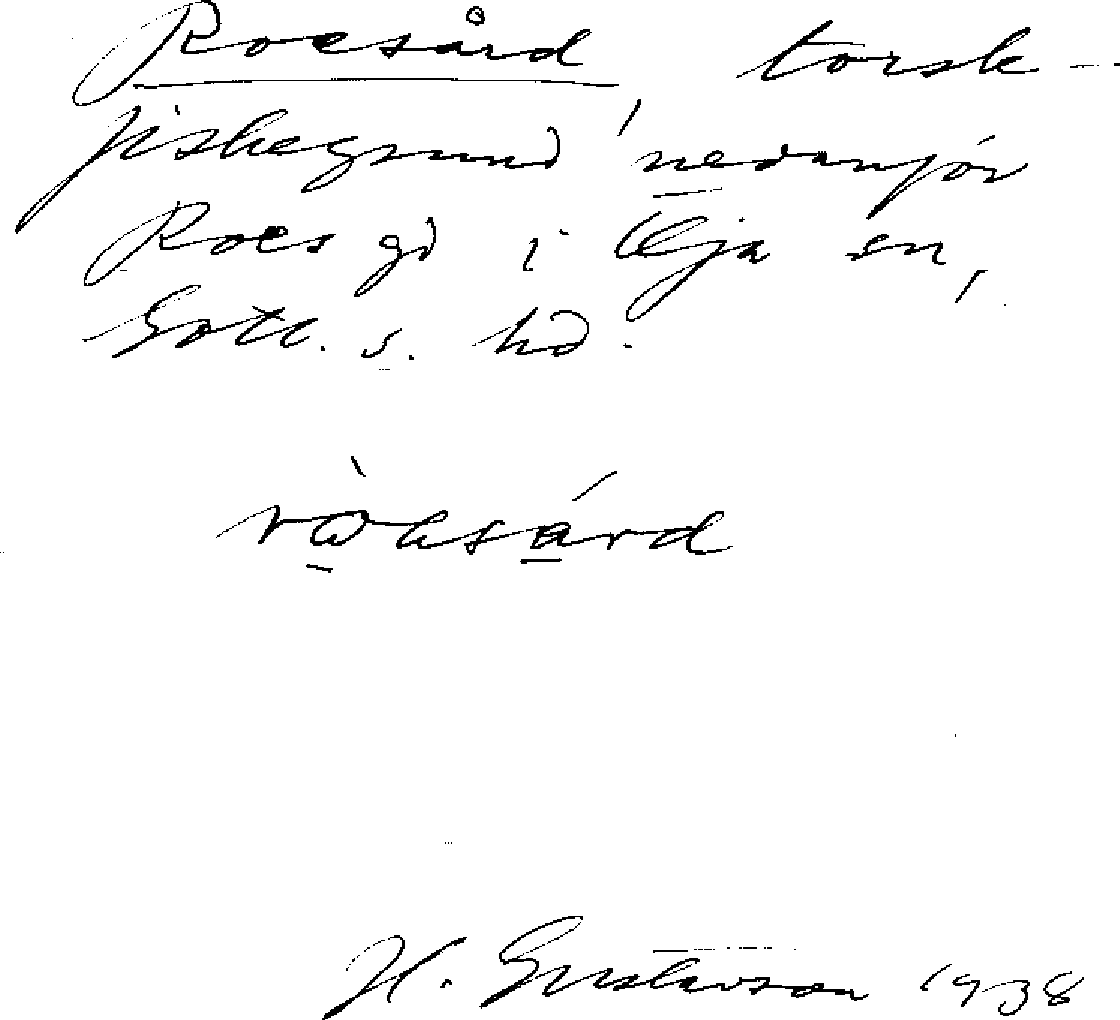 Roesård, torsk-
fiskegrund nedanför
Roes gd i Öja sn,
Gotl. s. hd.
H. Gustavson 1938